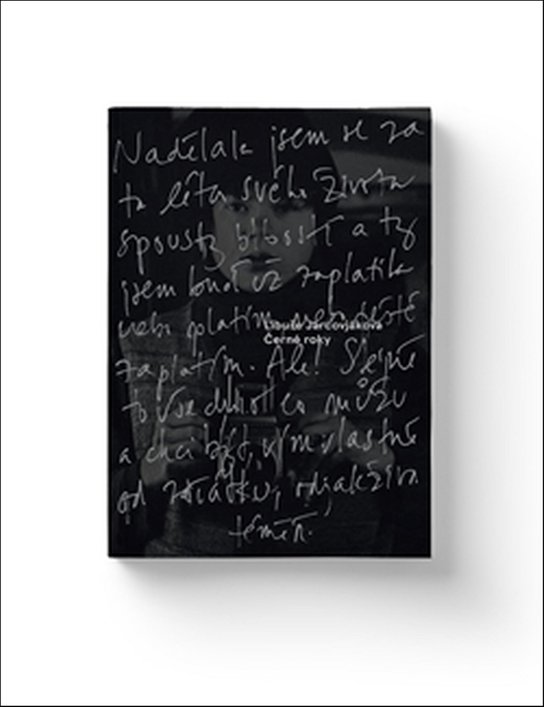 Nadělala jsem se za
ta léta svého života
spousty blbostí a ty
jsem buď už zaplatila
nebo platím ještě
Libuše Jarcovjáková
Černé roky
zaplatím. Ale! Stejně
to co můžu
a chci být, vím vlastně
od začátku, odjakživa
téměř.